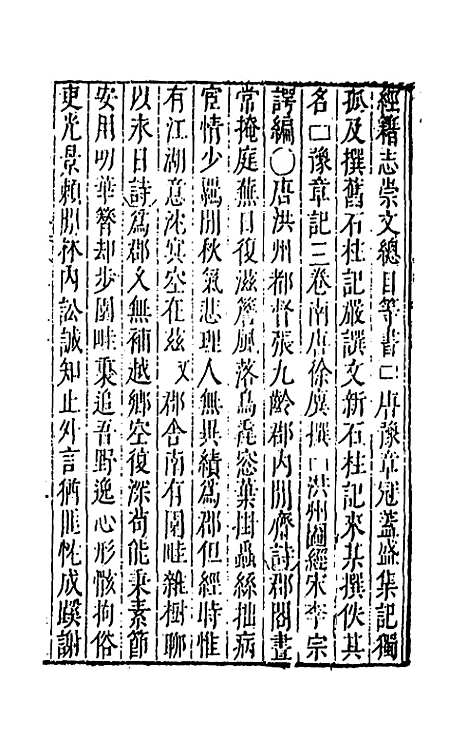 經籍志崇文總目等書□唐豫章冠蓋盛集記獨
孤及撰舊石柱記嚴譔文新石柱記來某撰佚其
名□豫章記三卷南唐徐廙撰□洪州圖經宋李宗
諤編○唐洪州都督張九齡郡內閒齋詩郡閣晝
常掩庭蕪日復滋簷風落鳥毳窓葉掛蟲絲拙病
宦情少羈閒秋氣悲理人無異績爲郡但經時惟
有江湖意沈冥空在玆又郡舍南有園畦雜樹聊
以末日詩爲郡久無補越鄉空復深茍能秉素節
安用叨華簪却步園畦裏追吾野逸心形骸拘俗
吏光景頼閒林內訟誠知止外言猶匪忱成蹊謝